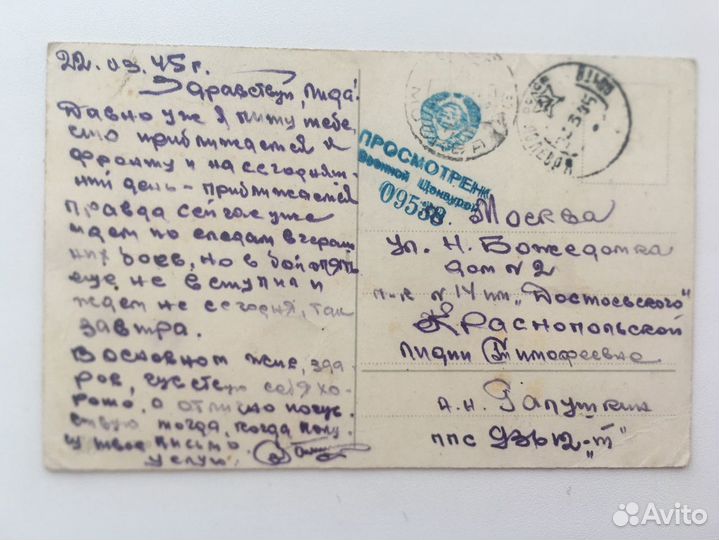 22.03.45 г.
Здравствуй, Лида!
Давно уже я пишу тебе,
что приближаемся к
фронту и на сегодняш-
ний день - приближаемся
Правда сейчас уже
идем по следам вчераш
них боев, но в бой опять
еще не вступил и
ждем не сегодня, так
завтра.
В основном жив, здо-
ров, чувствую себя хо-
рошо, а отлично почув
ствую тогда, когда полу-
чу твое письмо.
Целую.
ПРОСМОТРЕНО
Военной Цензурой
09538
гор. Москва
ул. Н. Божедомка
дом № 2
п-к № 14 им. "Достоевского"
Краснопольской
Лидии Тимофеевне
А.Н. Рапушкин
ппс 93512-"Т"
Avito